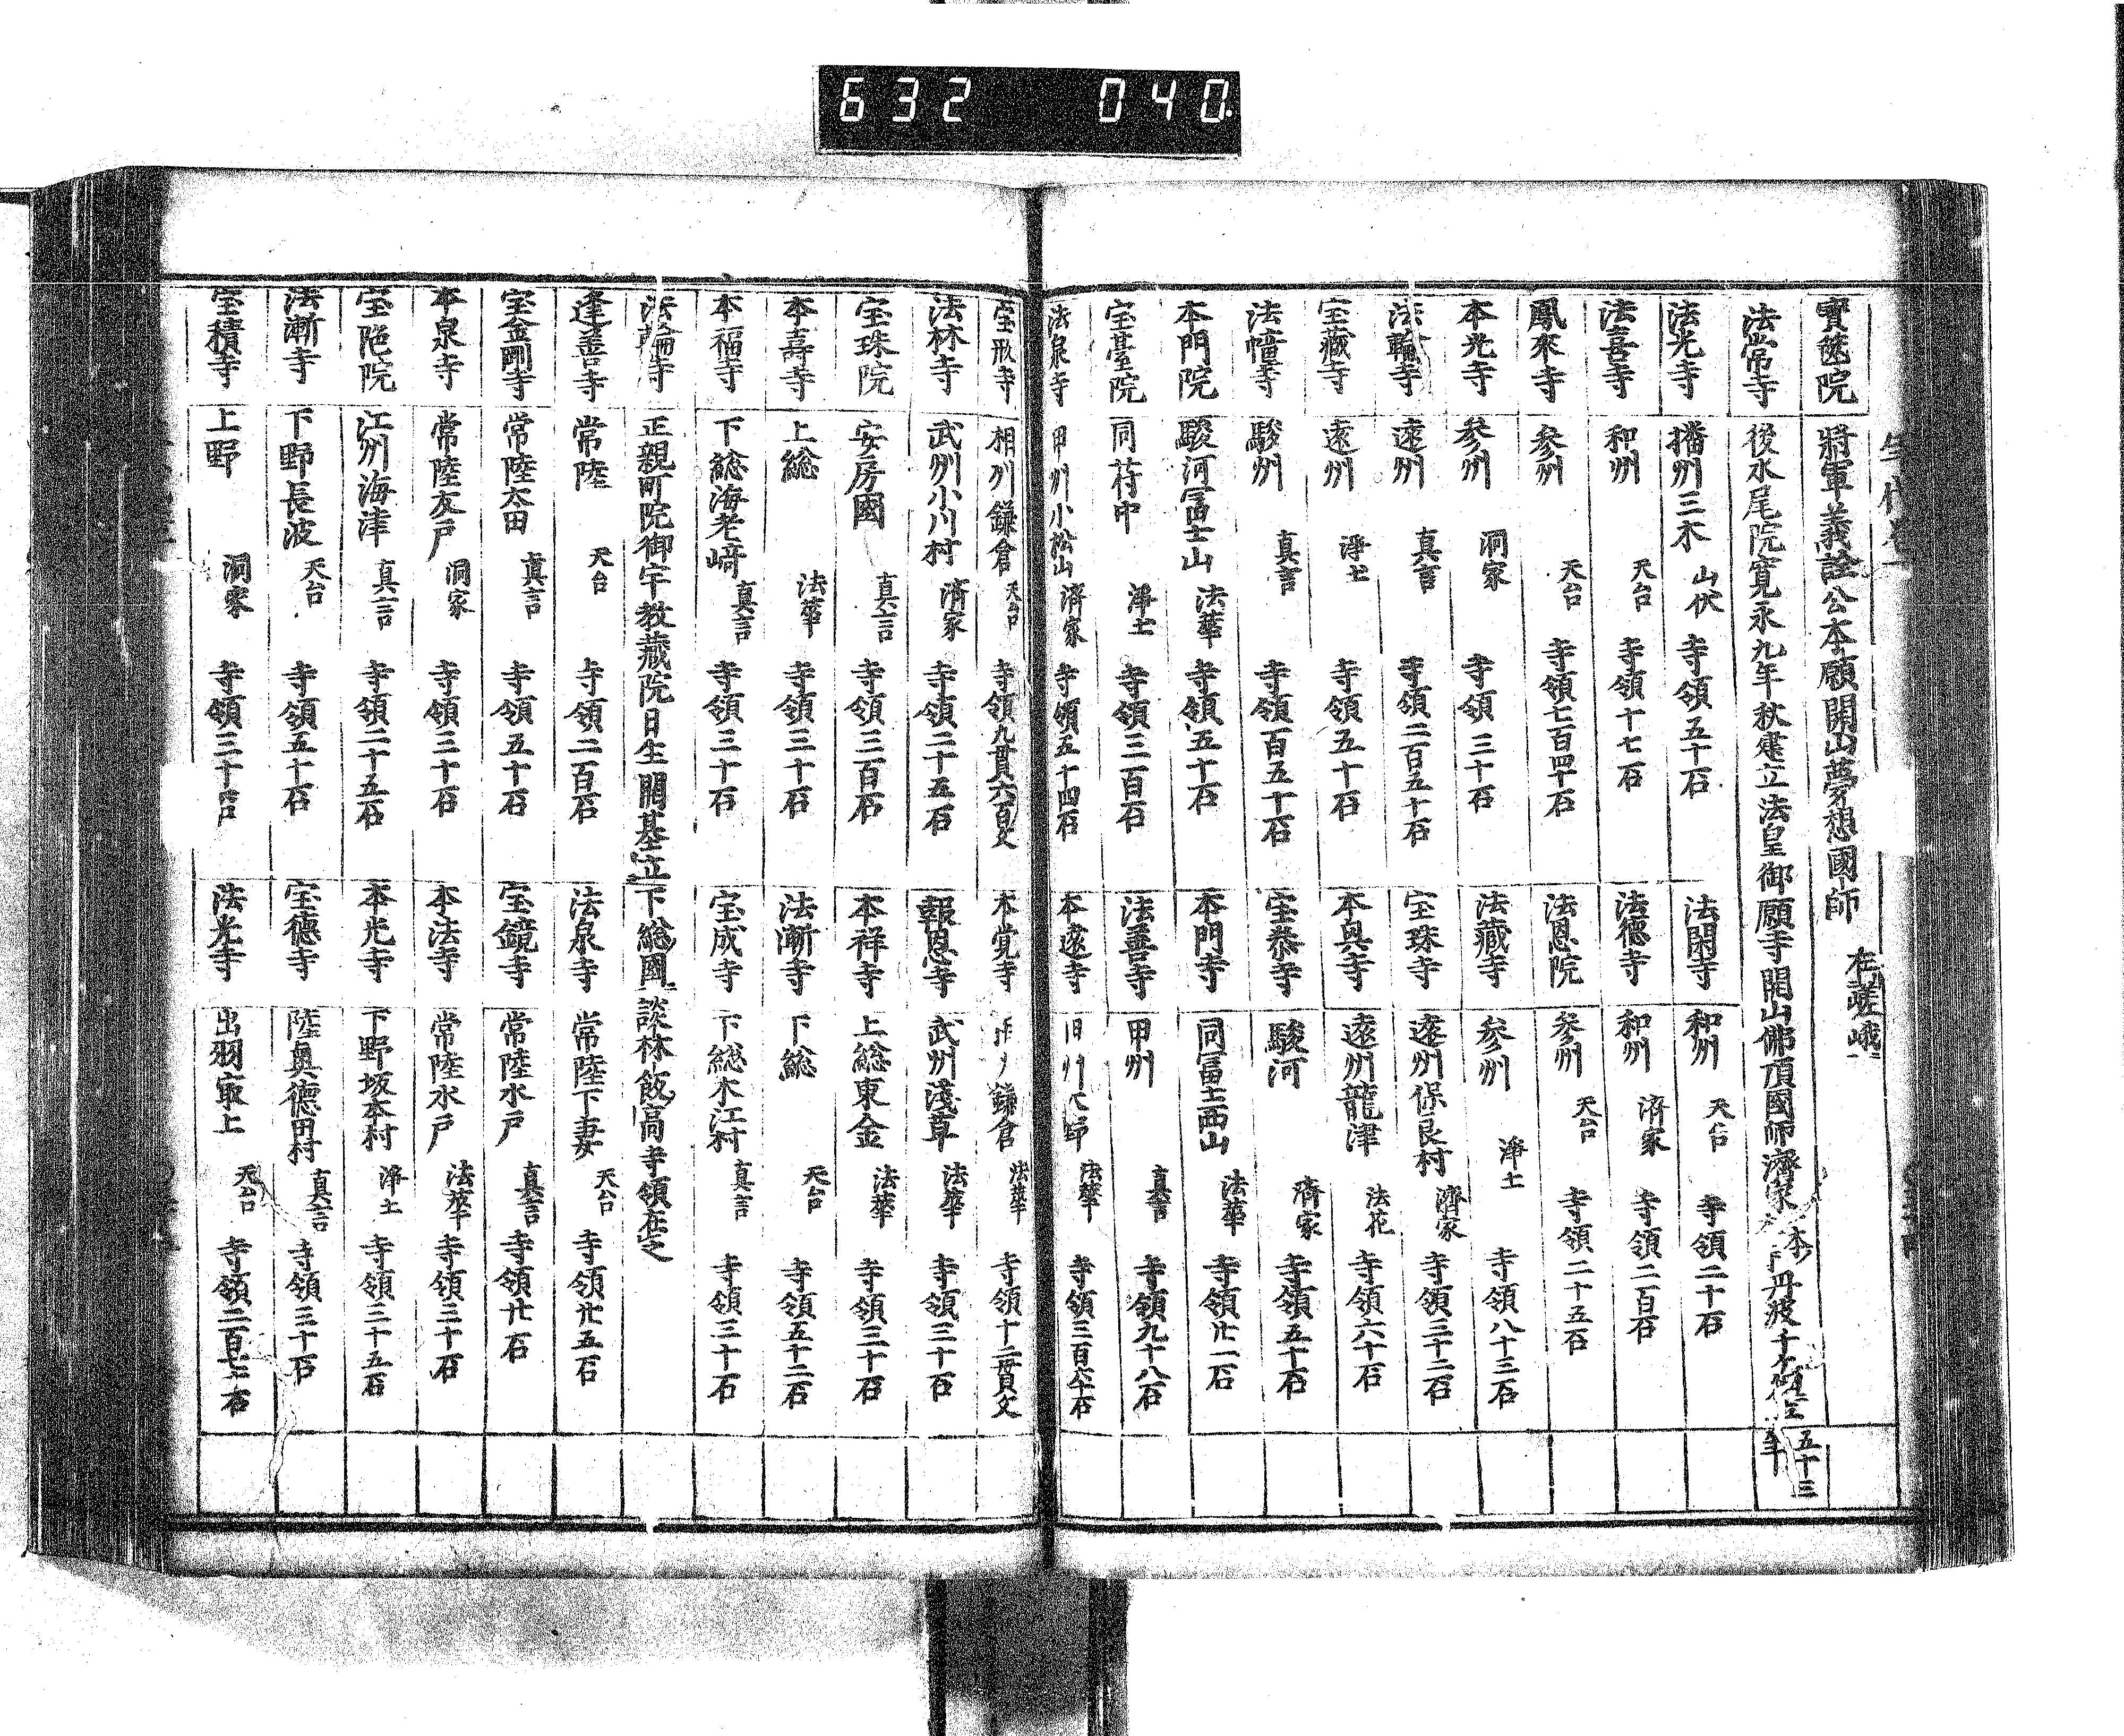 632 040
寳篋院 將軍義詮公本願開山夢想國師 在嵯峨
法常寺 後水尾院寛永九年秋建立法皇御願寺開山佛頂國師濟家 丹波千 五十三
法光寺 播州三木 山伏 寺領五十石 法閑寺 和州 天台 寺領二十石
法喜寺 和州 天台 寺領十七石 法德寺 和州 済家 寺領二百石
鳳來寺 参州 天台 寺領七百四十石 法恩院 参州 天台 寺領二十五石
本光寺 参州 洞家 寺領三十石 法藏寺 参州 淨土 寺領八十三石
法輪寺 遠州 真言 寺領二百五十石 宝珠寺 遠州保良村 濟家 寺領三十二石
宝藏寺 遠州 淨土 寺領五十石 本興寺 遠州龍津 法花 寺領六十石
法幢寺 駿州 真言 寺領百五十石 宝泰寺 駿河 濟家 寺領五十石
本門院 駿河冨士山 法華 寺領五十石 本門寺 同冨士西山 法華 寺領廿一石
宝臺院 同苻中 淨土 寺領三百石 法善寺 甲州 真言 寺領九十八石
法泉寺 甲州小松山 済家 寺領五十四石 本遠寺 大野 法華 寺領三百六十石
宝戒寺 相州鎌倉 天台 寺領九貫六百文 本覚寺 鎌倉 法華 寺領十二貫文
法林寺 武州小川村 済家 寺領二十五石 報恩寺 武州淺草 法華 寺領三十石
宝珠院 安房國 真言 寺領三百石 本祥寺 上総東金 法華 寺領三十石
本壽寺 上総 法華 寺領三十石 法漸寺 下総 天台 寺領五十二石
本福寺 下総海老﨑 真言 寺領三十石 宝成寺 下総木江村 真言 寺領三十石
法輪寺 正親町院御宇教藏院日生開基立下総國談林飯髙寺領在之
逢善寺 常陸 天台 寺領二百石 法泉寺 常陸下妻 天台 寺領廿五石
宝金剛寺 常陸太田 真言 寺領五十石 宝鏡寺 常陸水戸 真言 寺領廿石
本泉寺 常陸友戸 洞家 寺領三十石 本法寺 常陸水戸 法華 寺領三十石
宝陁院 江州海津 真言 寺領二十五石 本光寺 下野坂本村 淨土 寺領三十五石
法漸寺 下野長波 天台 寺領五十石 宝德寺 陸奥德田村 真言 寺領三十石
宝積寺 上野 洞家 寺領三十石 法光寺 出羽㝡上 天台 寺領二百七十石